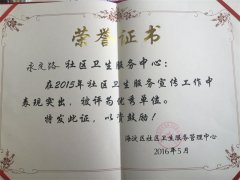 荣誉证书
永定路社区卫生服务中心:
在2015年社区卫生服务宣传工作中
表现突出,被评为优秀单位。
特发此证,以资鼓励!
海淀区社区卫生服务管理中心
2016年5月